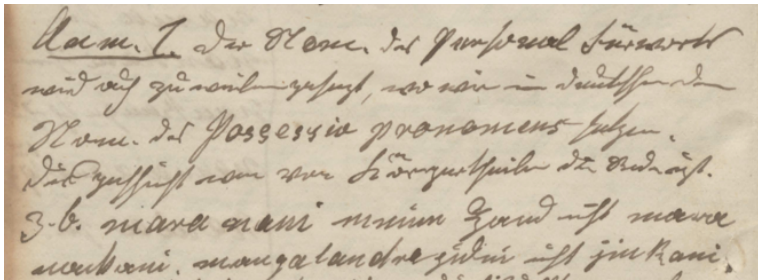 Anm. 1. Der Nom. des Personal Fürworts
wird oft zuweilen gesetzt, wo wir im Deutschen den
Nom. des Possessiv pronomens setzen.
Dies geschieht wenn von Körpertheilen die Rede ist.
z. b. mara nani meine Hand nicht mara
nankani. mangalandre nicht